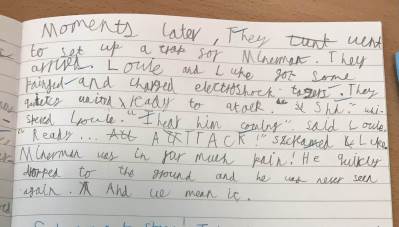 Moments later, They went
to set up a trap for Minerman. They
arrived. Louie and Luke got some
and charged electroshock tasers. They
quietly waited ready to atack. "Shh." whi-
sperd Louie. "I hear him coming" said Louie.
"Ready... ATTACK!" screamed Luke.
Minerman was in far much pain! He quickly
dropped to the ground and he was never seen
again. And we mean it.